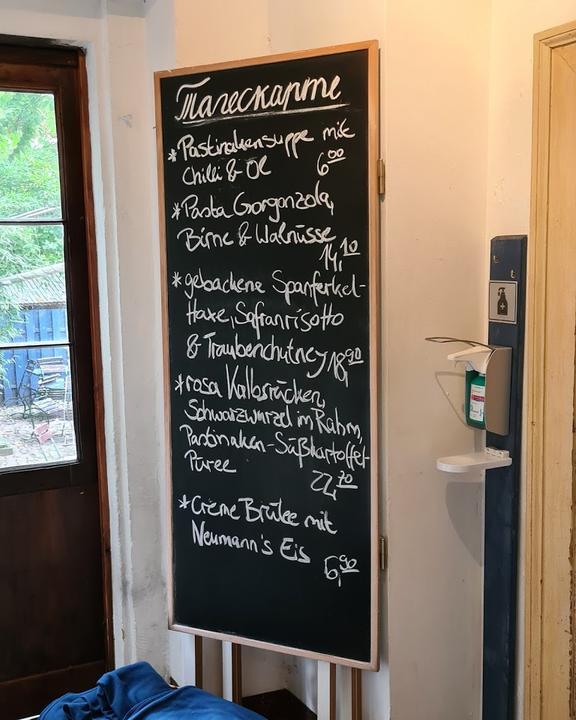 Тагескарте
* Pastinakensuppe mit
Chilli & Öl 6,00
* Pasta Gorgonzola,
Birne & Walnüsse
14,10
* gebackene Spanferkel-
Haxe, Safranrisotto
& Traubenchutney 18,90
* rosa Kalbsrücken,
Schwarzwurzel im Rahm,
Pastinaken-Süßkartoffel-
Püree
22,70
* Crème Brûlée mit
Neumann's Eis
6,90